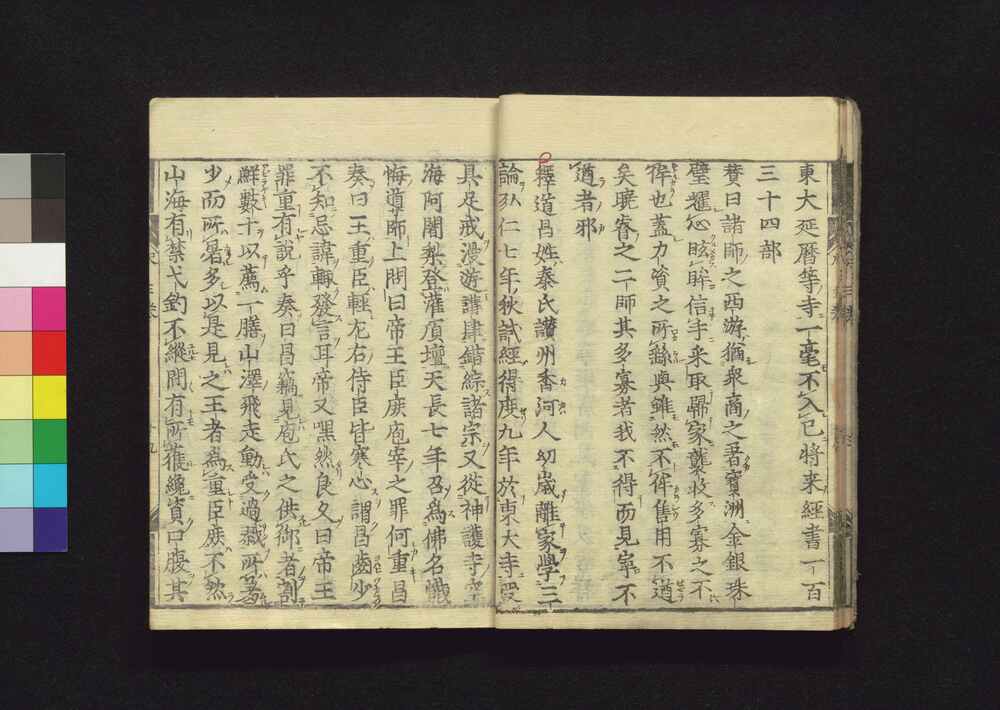 東大延曆等寺一毫不入己將来經書一百
三十四部
賛曰諸師之西游猶衆商之君寳洲金銀珠
璧耀心眩眸信手来取歸家襲收多寡之不
侔也蓋力資之所繇與雖然不侔售用不遒
矣曉睿之二師其多寡者我不得而見寧不
道者邪
釋道昌姓秦氏讃州香河人幼歲離家學三
論弘仁七年秋試經得度九年於東大寺受
具足戒漫遊講肆錯綜諸宗又從神護寺空
海阿闍梨登灌頂壇天長七年召爲佛名懺
悔導師上問曰帝王臣庶庖宰之罪何重昌
奏曰王重臣輕左右侍臣皆寒心謂昌齒少
不知忌諱輙發言耳帝又嘿然良久曰帝王
罪重有說乎奏曰昌竊見庖氏之供御者割
鮮數十以薦一膳山澤飛走動受過殱所
少而所多以是見之王者爲重臣庶不然
山海有禁弋釣不縱間有所獲纔資口腹其